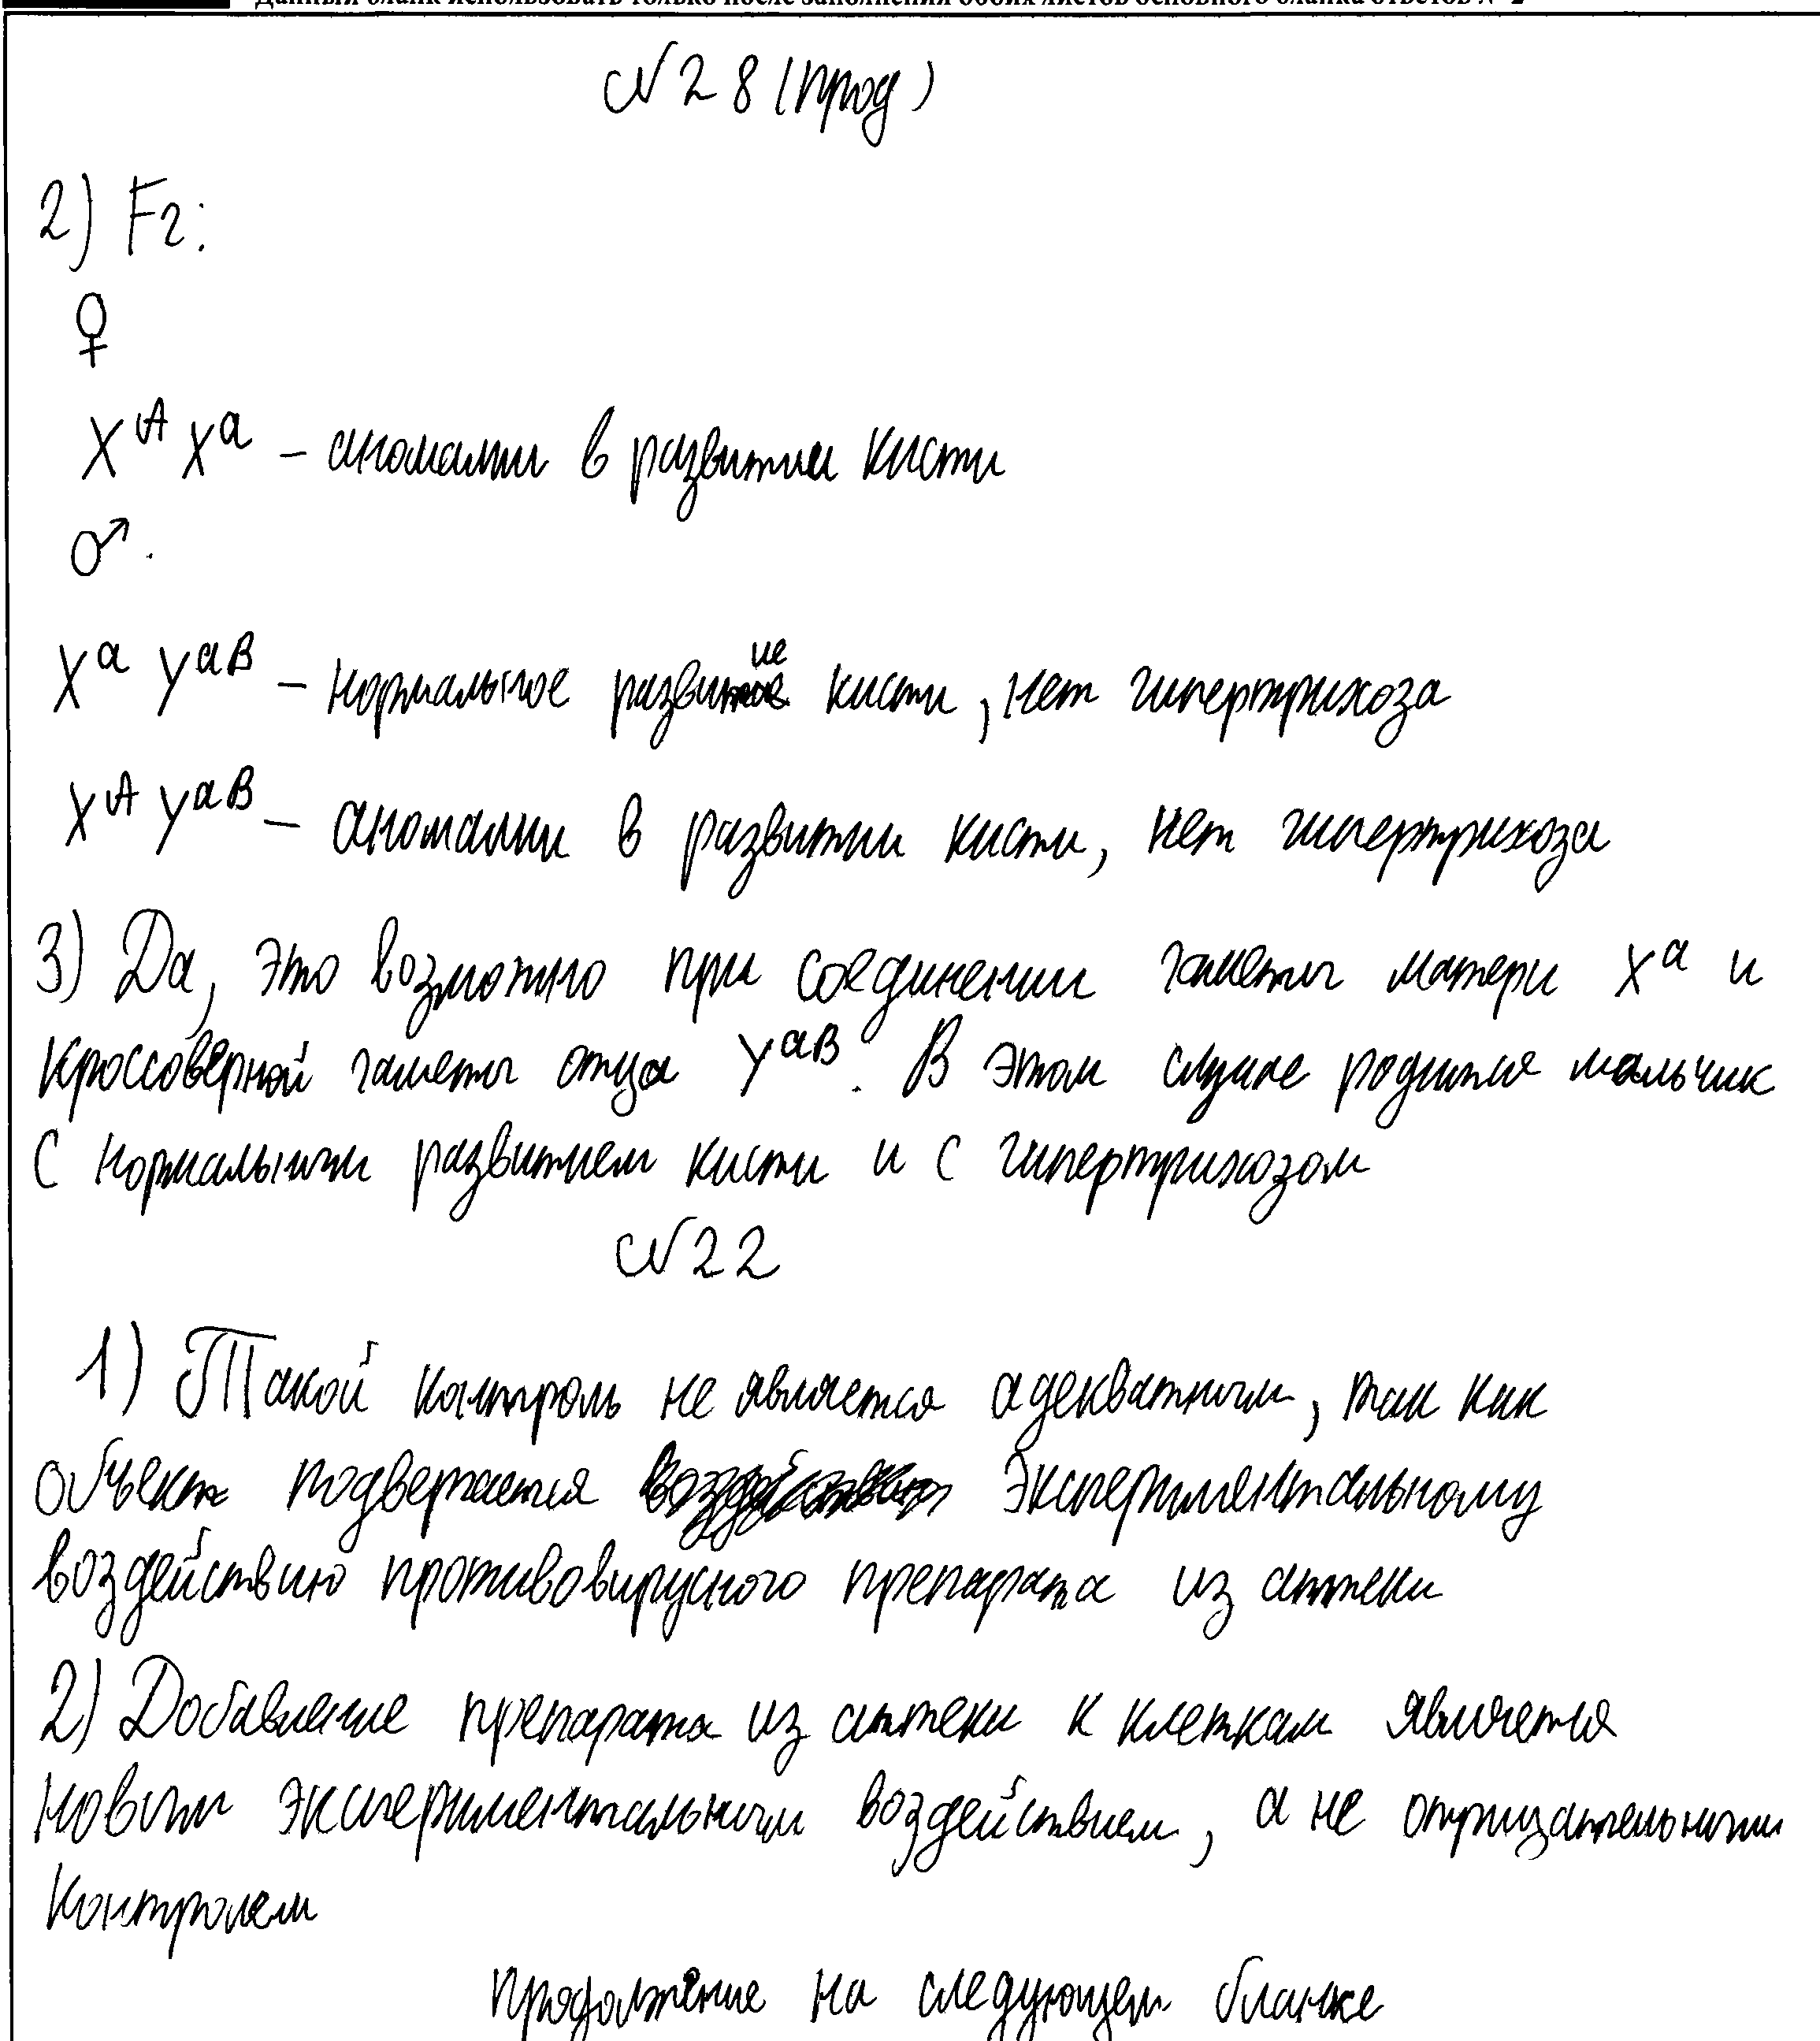 Данный бланк использовать только после заполнения обоих листов основного бланка ответов № 2
№28 (прод)
2) F2:
♀
X^A X^a – аномалии в развитии кисти
♂.
X^a Y^aB – нормальное развитие кисти, нет гипертрихоза
X^A Y^aB – аномалии в развитии кисти, нет гипертрихоза
3) Да, это возможно при соединении гаметы матери X^a и
кроссоверной гаметы отца Y^aB. В этом случае родится мальчик
с нормальным развитием кисти и с гипертрихозом
№22
1) Такой контроль не является адекватным, так как
объект подвергается экспериментальному
воздействию противовирусного препарата из аптеки
2) Добавление препарата из аптеки к клеткам является
новым экспериментальным воздействием, а не отрицательным
контролем
продолжение на следующем бланке